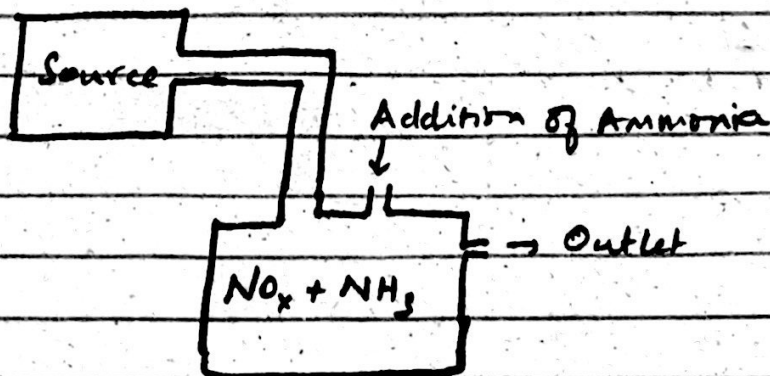 Source
Addition of Ammonia
→ Outlet
NOx + NH3